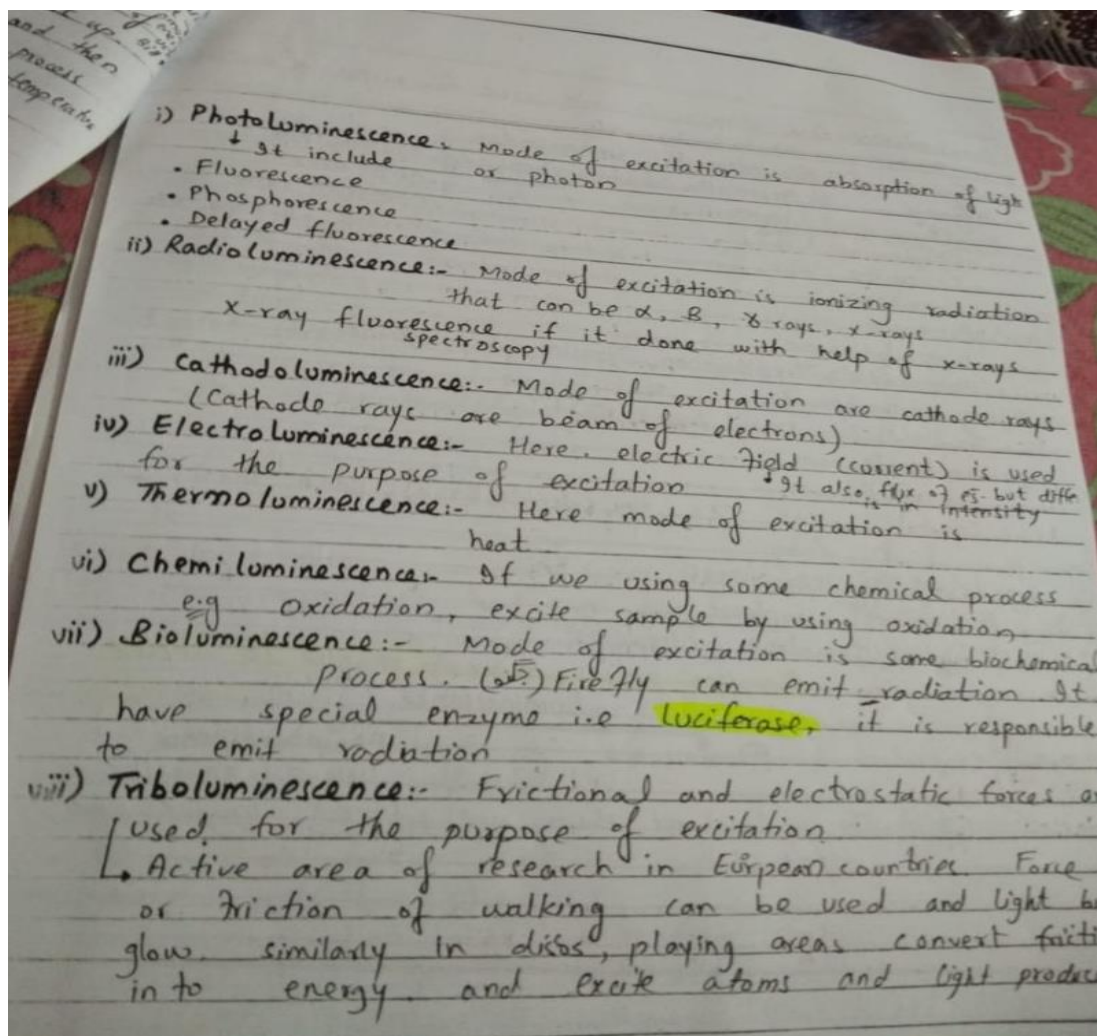 up
and then
process
temperature
i) Photoluminescence:- Mode of excitation is absorption of light
↓ It include or photon
• Fluorescence
• Phosphorescence
• Delayed fluorescence
ii) Radioluminescence:- Mode of excitation is ionizing radiation
that can be α, β, γ rays, x-rays
X-ray fluorescence if it done with help of x-rays
spectroscopy
iii) Cathodoluminescence:- Mode of excitation are cathode rays
(Cathode rays are beam of electrons)
iv) Electroluminescence:- Here, electric field (current) is used
for the purpose of excitation It also flux of es. but diffe
is in intensity
v) Thermoluminescence:- Here mode of excitation is
heat
vi) Chemiluminescence:- If we using some chemical process
e.g oxidation, excite sample by using oxidation
vii) Bioluminescence:- Mode of excitation is some biochemical
process. Firefly can emit radiation It
have special enzyme i.e luciferase, it is responsible
to emit radiation
viii) Triboluminescence:- Frictional and electrostatic forces a
used for the purpose of excitation
• Active area of research in Eurpean countries. Force
or friction of walking can be used and light b
glow. similarly In disos, playing areas convert fricti
in to energy. and excite atoms and light produc